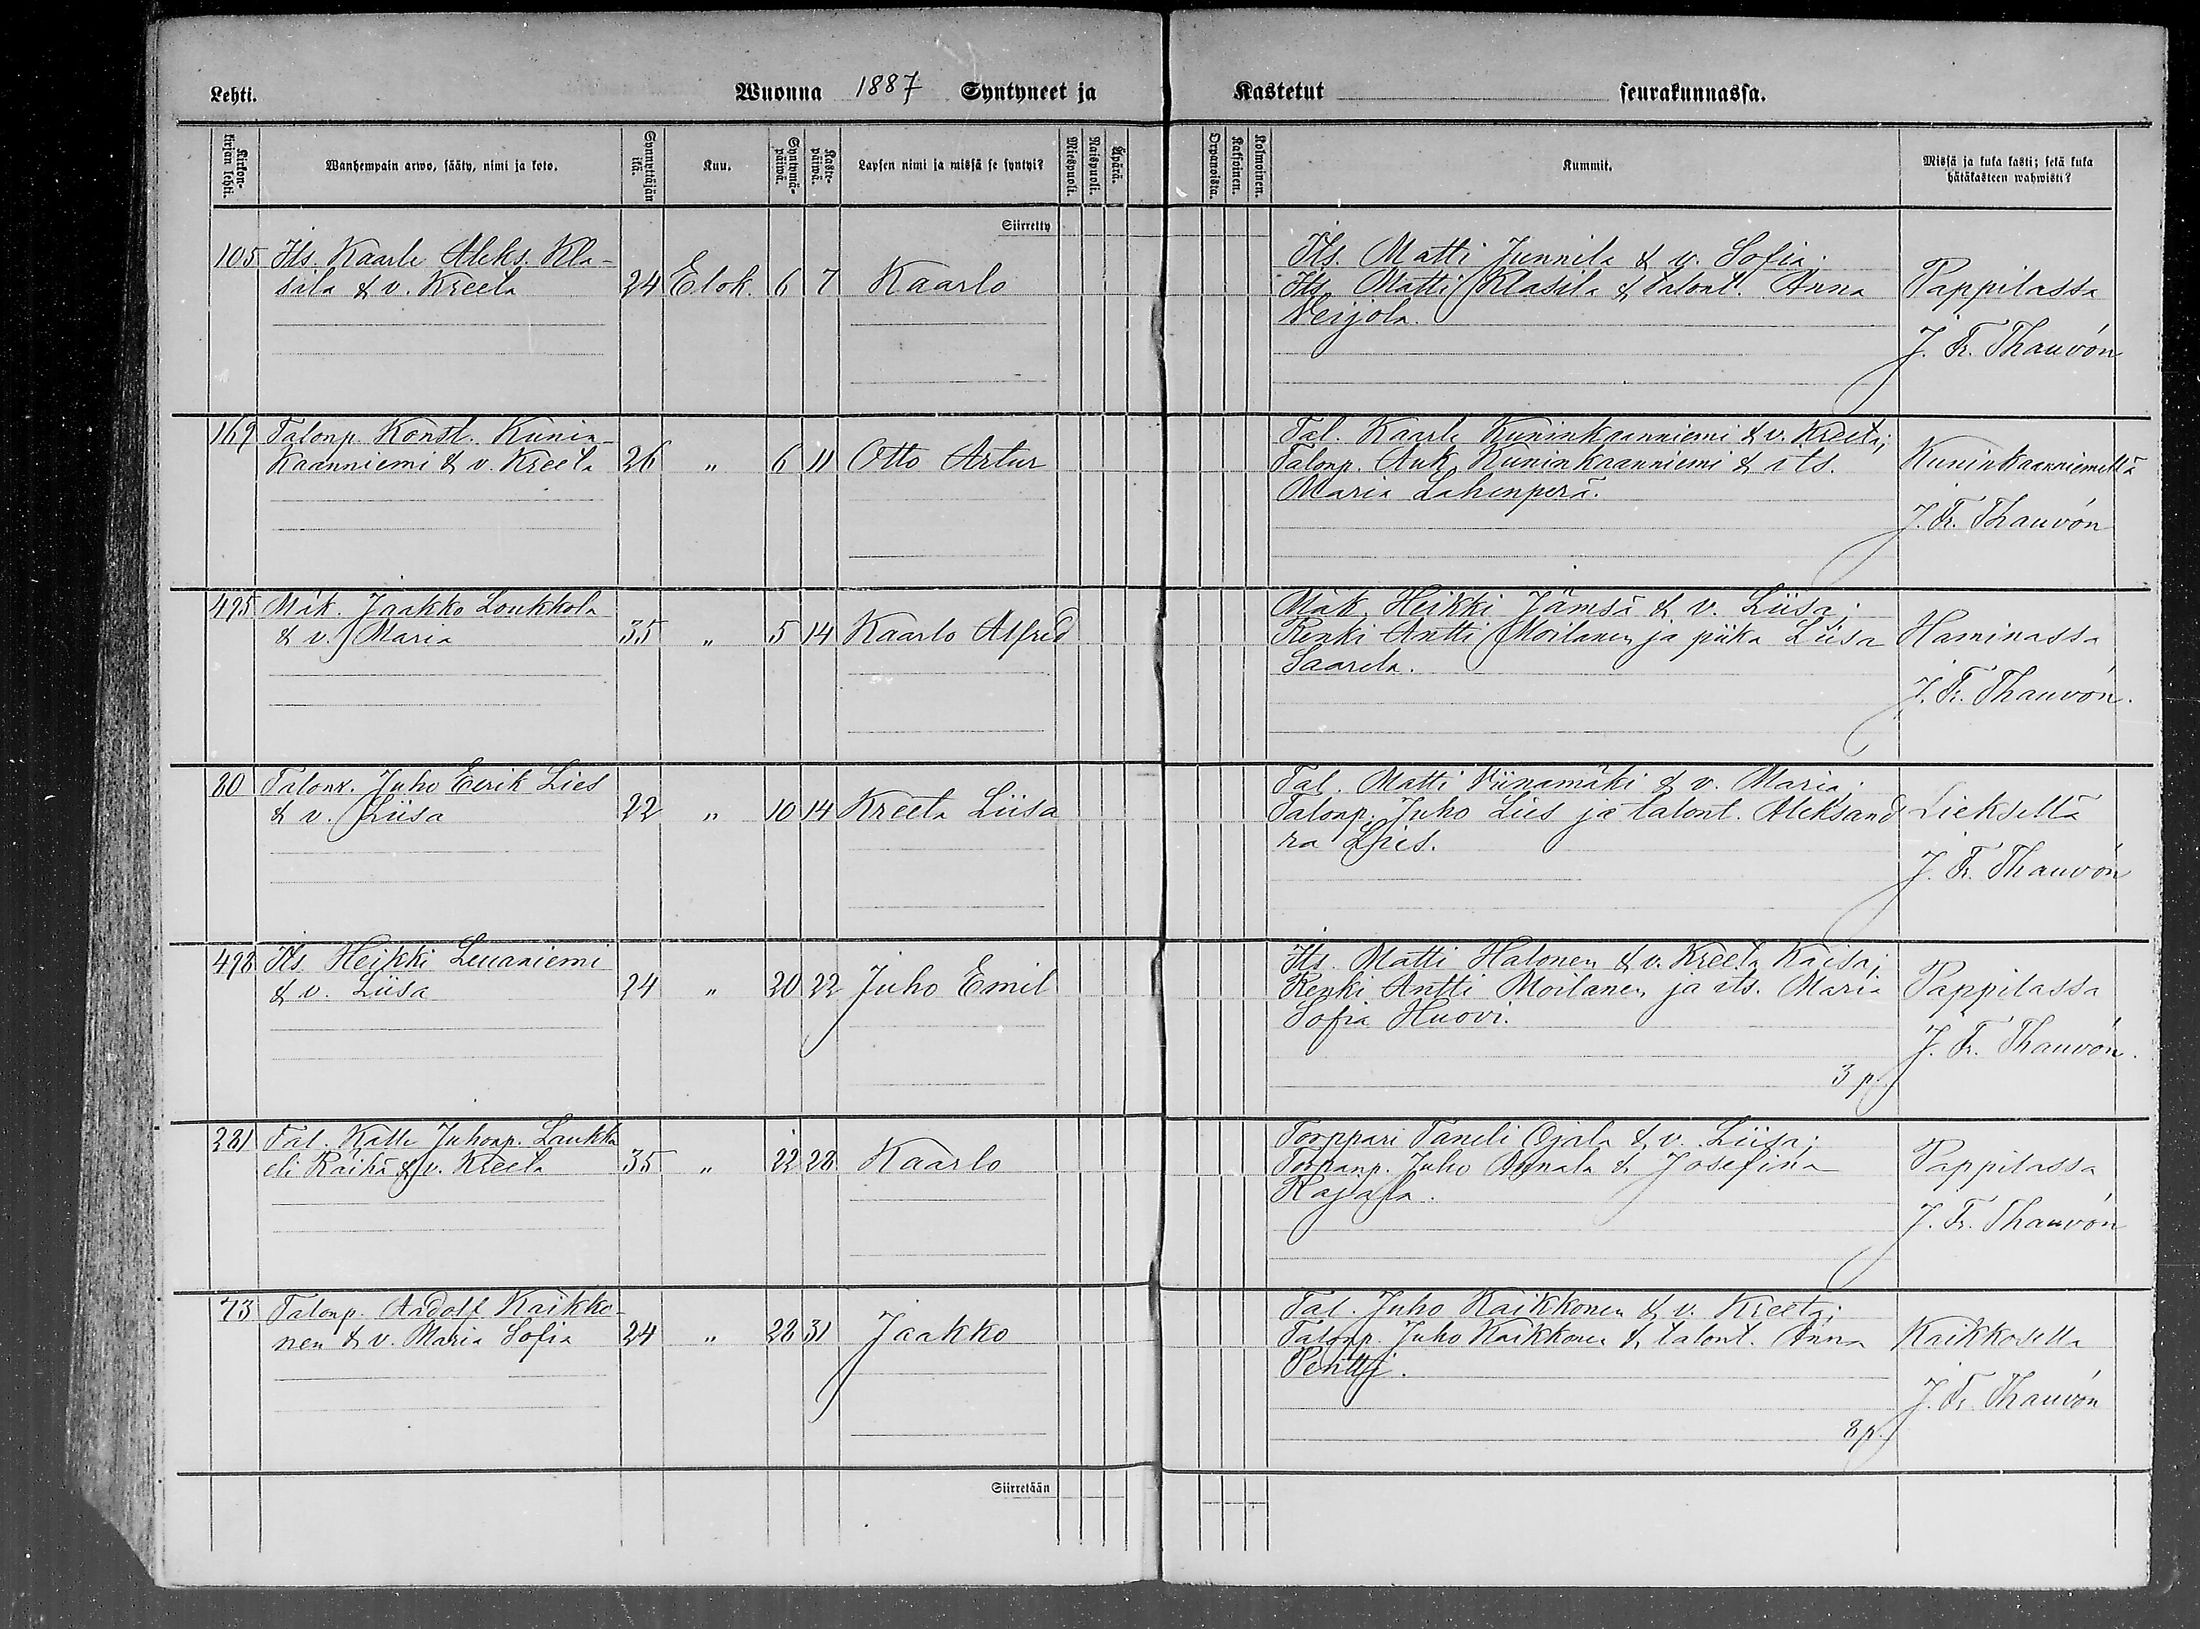 Lehti. Wuonna 1887 Syntyneet ja Kastetut seurakunnassa.
Kirkonkirjan lehti. Wanhempain arwo, sääty, nimi ja koto. Synnyttäjän ikä. Kuu. Syntymäpäiwä. Kastepäiwä. Lapsen nimi ja missä se syntyi? Miespuoli. Naispuoli. Äpärä. Orpanoista. Kaksoinen. Kolmoinen. Kummit. Missä ja kuka kasti; sekä kuka hätäkasteen wahwisti?
Siirretty
105 Its. Kaarle Aleks. Kla- Its. Matti Junnila & v. Sofia;
sila & v. Kreeta 24 Elok. 6 7 Kaarlo Its. Matti Klasila & talont. Anna Pappilassa
Neijola.
J. Fr. Thauvón
169 Talonp. Konst. Kunin- Tal. Kaarle Kuninkaanniemi & v. Kreeta;
kaanniemi & v. Kreeta 26 " 6 11 Otto Artur Talonp. Auk. Kuninkaanniemi & its. Kuninkaanniemellä
Maria Lahenperä.
J. Fr. Thauvón
495 Mäk. Jaakko Loukkola Mäk. Heikki Jämsä & v. Liisa;
& v. Maria 35 " 5 14 Kaarlo Alfred Renki Antti Moilanen ja piika Liisa Haminassa
Saarela.
J. Fr. Thauvón.
80 Talonp. Juho Eerik Lies Tal. Matti Viinamäki & v. Maria;
& v. Liisa 22 " 10 14 Kreeta Liisa Talonp. Juho Lies ja talont. Aleksand Lieksellä
ra Lies.
J. Fr. Thauvón
498 Its. Heikki Leuaniemi Its. Matti Halonen & v. Kreeta Kaisa;
& v. Liisa 24 " 20 22 Juho Emil Renki Antti Moilanen ja its. Maria Pappilassa
Sofia Huovi.
J. Fr. Thauvón.
3 p.
281 Tal. Kalle Juhonp. Laukka Torppari Taneli Ojala & v. Liisa;
eli Räihä & v. Kreeta 35 " 22 28 Kaarlo Torpanp. Juho Annala & Josefina Pappilassa
Rajala.
J. Fr. Thauvón
73 Talonp. Aadolf Kaikko- Tal. Juho Kaikkonen & v. Kreeta;
nen & v. Maria Sofia 24 " 28 31 Jaakko Talonp. Juho Kaikkonen & talont. Anna Kaikkosella
Penttj.
J. Fr. Thauvón
8 p.
Siirretään